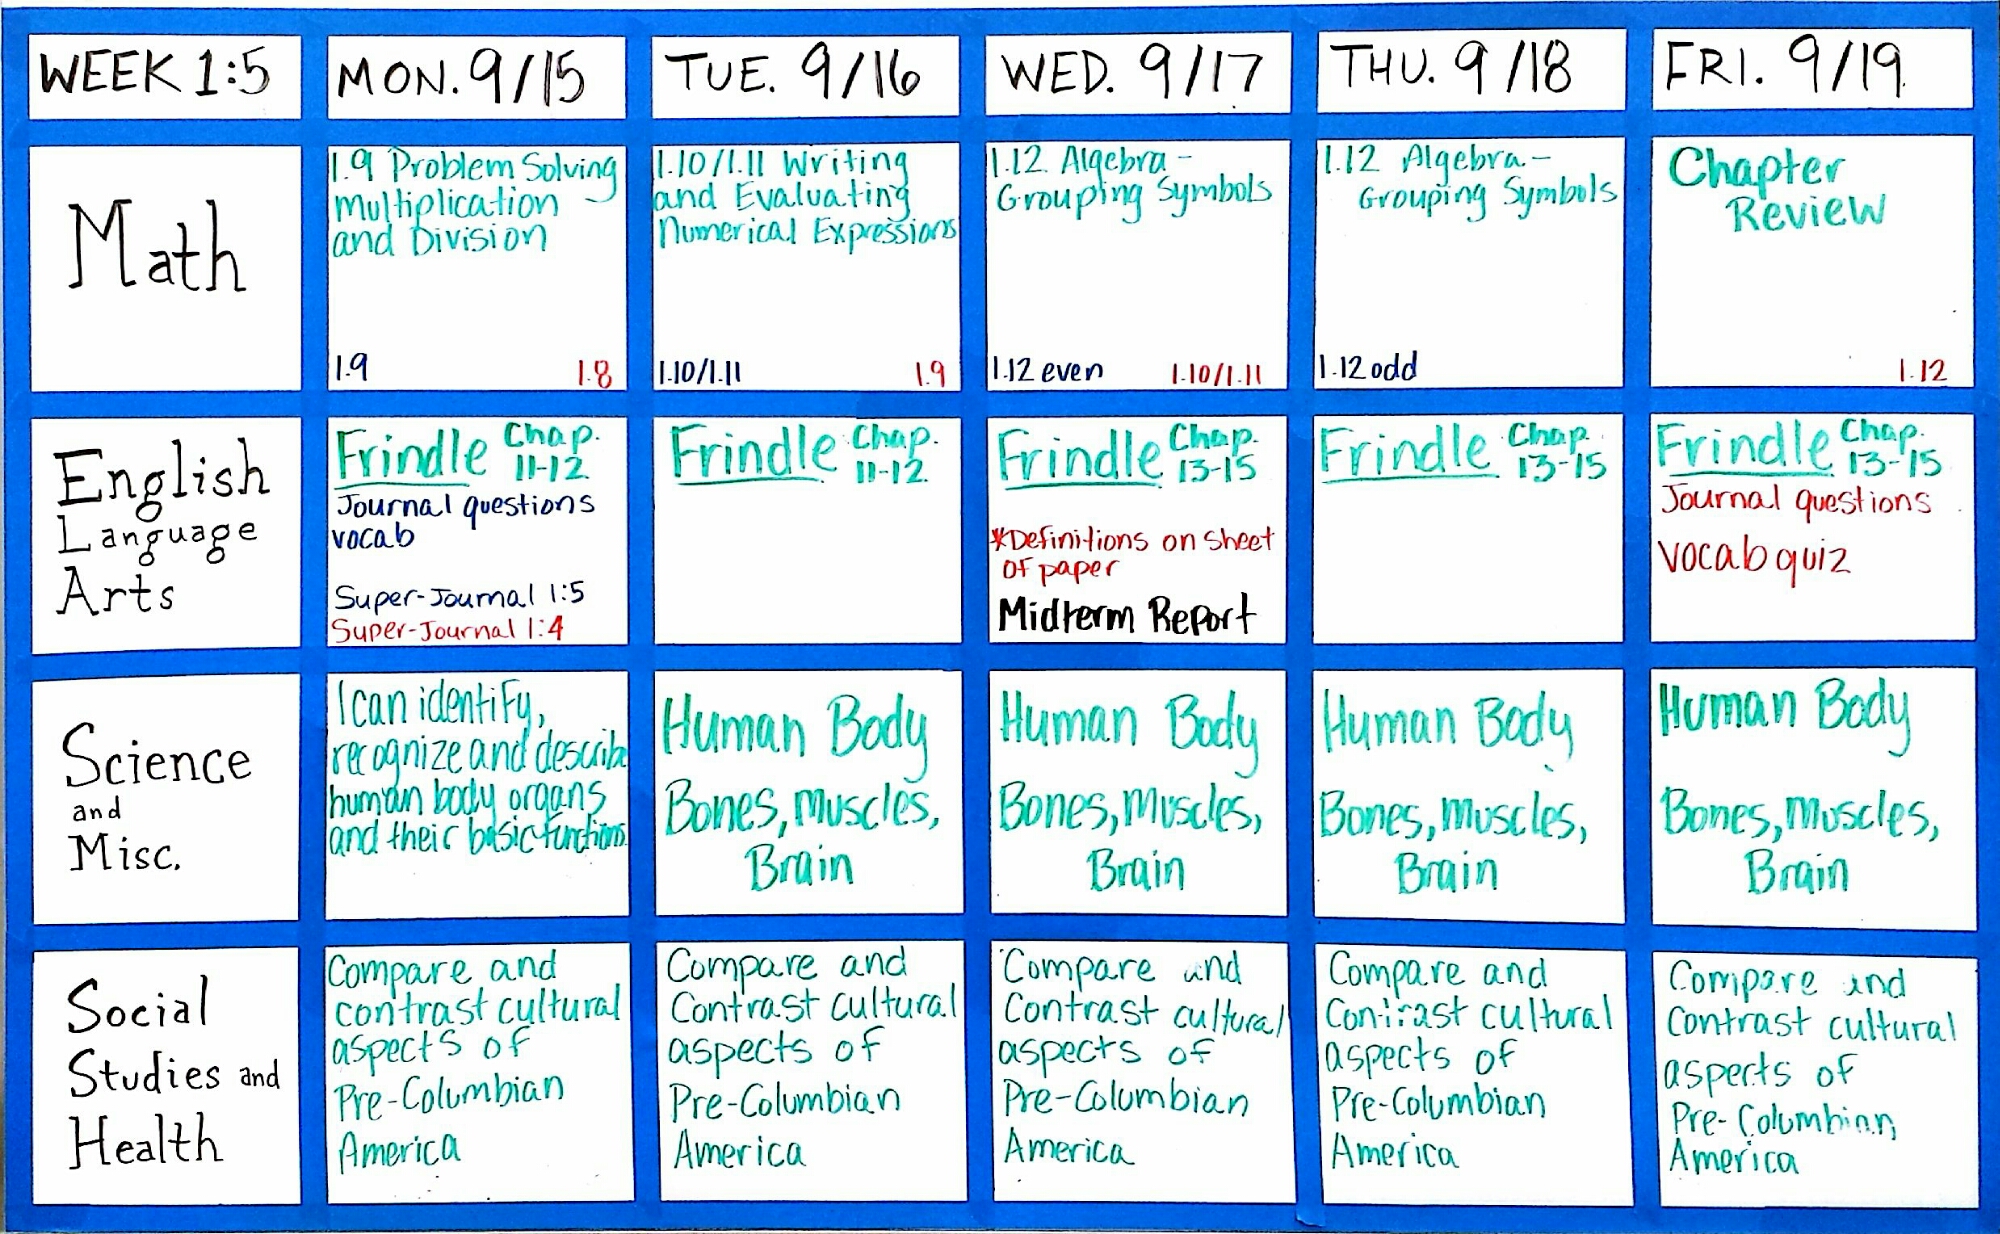 WEEK 1:5
MON. 9/15
TUE. 9/16
WED. 9/17
THU. 9/18
FRI. 9/19
Math
1.9 Problem Solving
multiplication
and Division
1.9
1.8
1.10/1.11 Writing
and Evaluating
Numerical Expressions
1.10/1.11
1.9
1.12 Algebra -
Grouping Symbols
1.12 even
1.10/1.11
1.12 Algebra -
Grouping Symbols
1.12 odd
Chapter
Review
1.12
English
Language
Arts
Frindle Chap.
11-12
Journal questions
vocab
Super-Journal 1:5
Super-Journal 1:4
Frindle Chap.
11-12
Frindle Chap.
13-15
*Definitions on sheet
of paper
Midterm Report
Frindle Chap.
13-15
Frindle Chap.
13-15
Journal questions
vocab quiz
Science
and
Misc.
I can identify,
recognize and describe
human body organs
and their basic functions.
Human Body
Bones, muscles,
Brain
Human Body
Bones, muscles,
Brain
Human Body
Bones, muscles,
Brain
Human Body
Bones, muscles,
Brain
Social
Studies and
Health
Compare and
contrast cultural
aspects of
Pre-Columbian
America
Compare and
Contrast cultural
aspects of
Pre-Columbian
America
Compare and
Contrast cultural
aspects of
Pre-Columbian
America
Compare and
Contrast cultural
aspects of
Pre-Columbian
America
Compare and
Contrast cultural
aspects of
Pre-Columbian
America